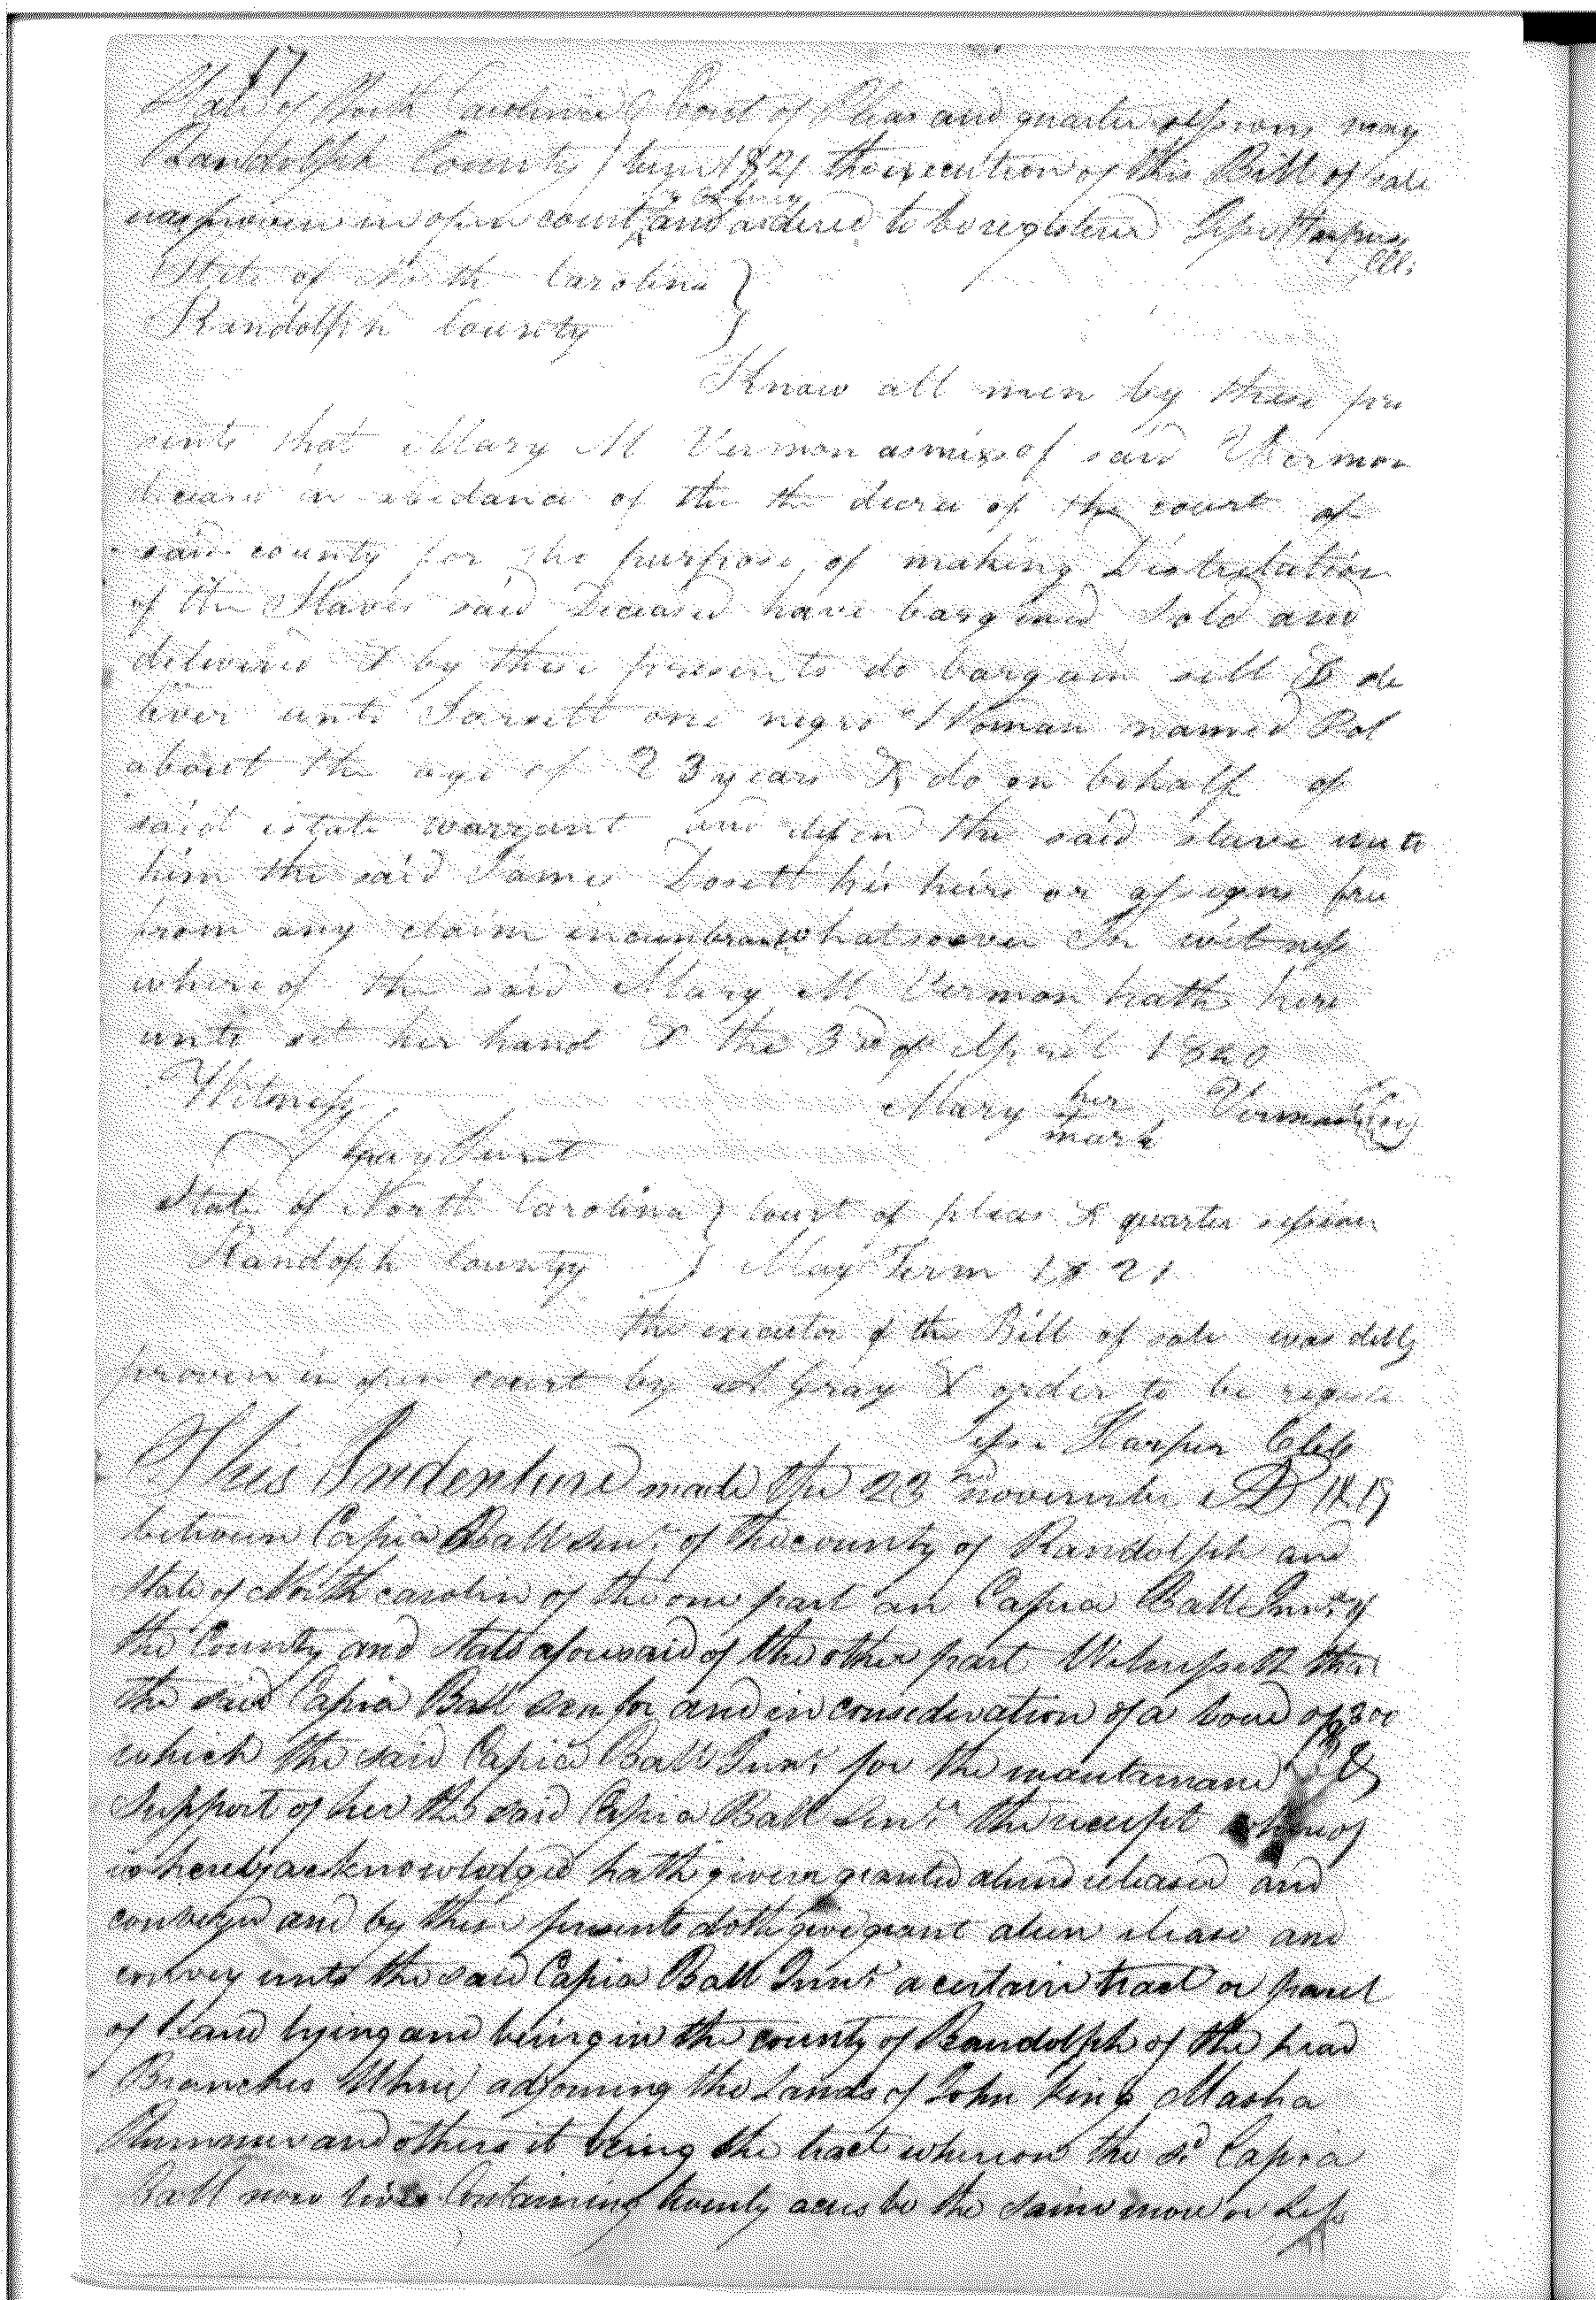 17
State of North Carolina } Court of Pleas and quarter sessions may
Randolph County } term 1821 the execution of this Bill of sale
was proven in open court and ordered to be registered Jesse Harper
Clk
State of North Carolina }
Randolph County }
Know all men by these pre
sents that Mary M Vermon of said Vermon
in of the the decree of the court of
said county for the purpose of making Distribution
of the Slaves said Deceased have bargined Sold and
delivered & by these presents do bargain sell & de
liver unto one negro Woman named
about the age of 23 years & do on behalf of
said estate warrant and the said slave unto
him the said James Dosett his heirs or assigns free
from any claim incumbrance whatsoever In witness
whereof the said Mary M Vermon hath here
unto set her hand & the 3rd of April 1820
Witness Mary her mark Vermon
Gray
State of North Carolina } Court of pleas & quarter session
Randolph County } May Term 1821
the of the Bill of sale was
proven in open court by A Gray & order to be
Jesse Harper Clk
This Indenture made the 23rd november AD 1819
between Capia Ball Senr. of the county of Randolph and
State of North carolin of the one part an Capia Ball Junr. of
the County and State aforesaid of the other part Witnesseth that
the said Capia Ball Sen for and in consideration of a bond of 300
which the said Capia Ball Junr. for the &
Support of her the said Capia Ball Senr. the receipt
is hereby acknowledged hath given granted and
conveyed and by these presents doth give grant and
convey unto the said Capia Ball Junr. a certain tract or parcel
of Land lying and being in the county of Randolph of the head
Branches adjoining the Lands of John King
and others it being the tract whereon the sd. Capia
Ball now lives Containing twenty acres be the same more or Less